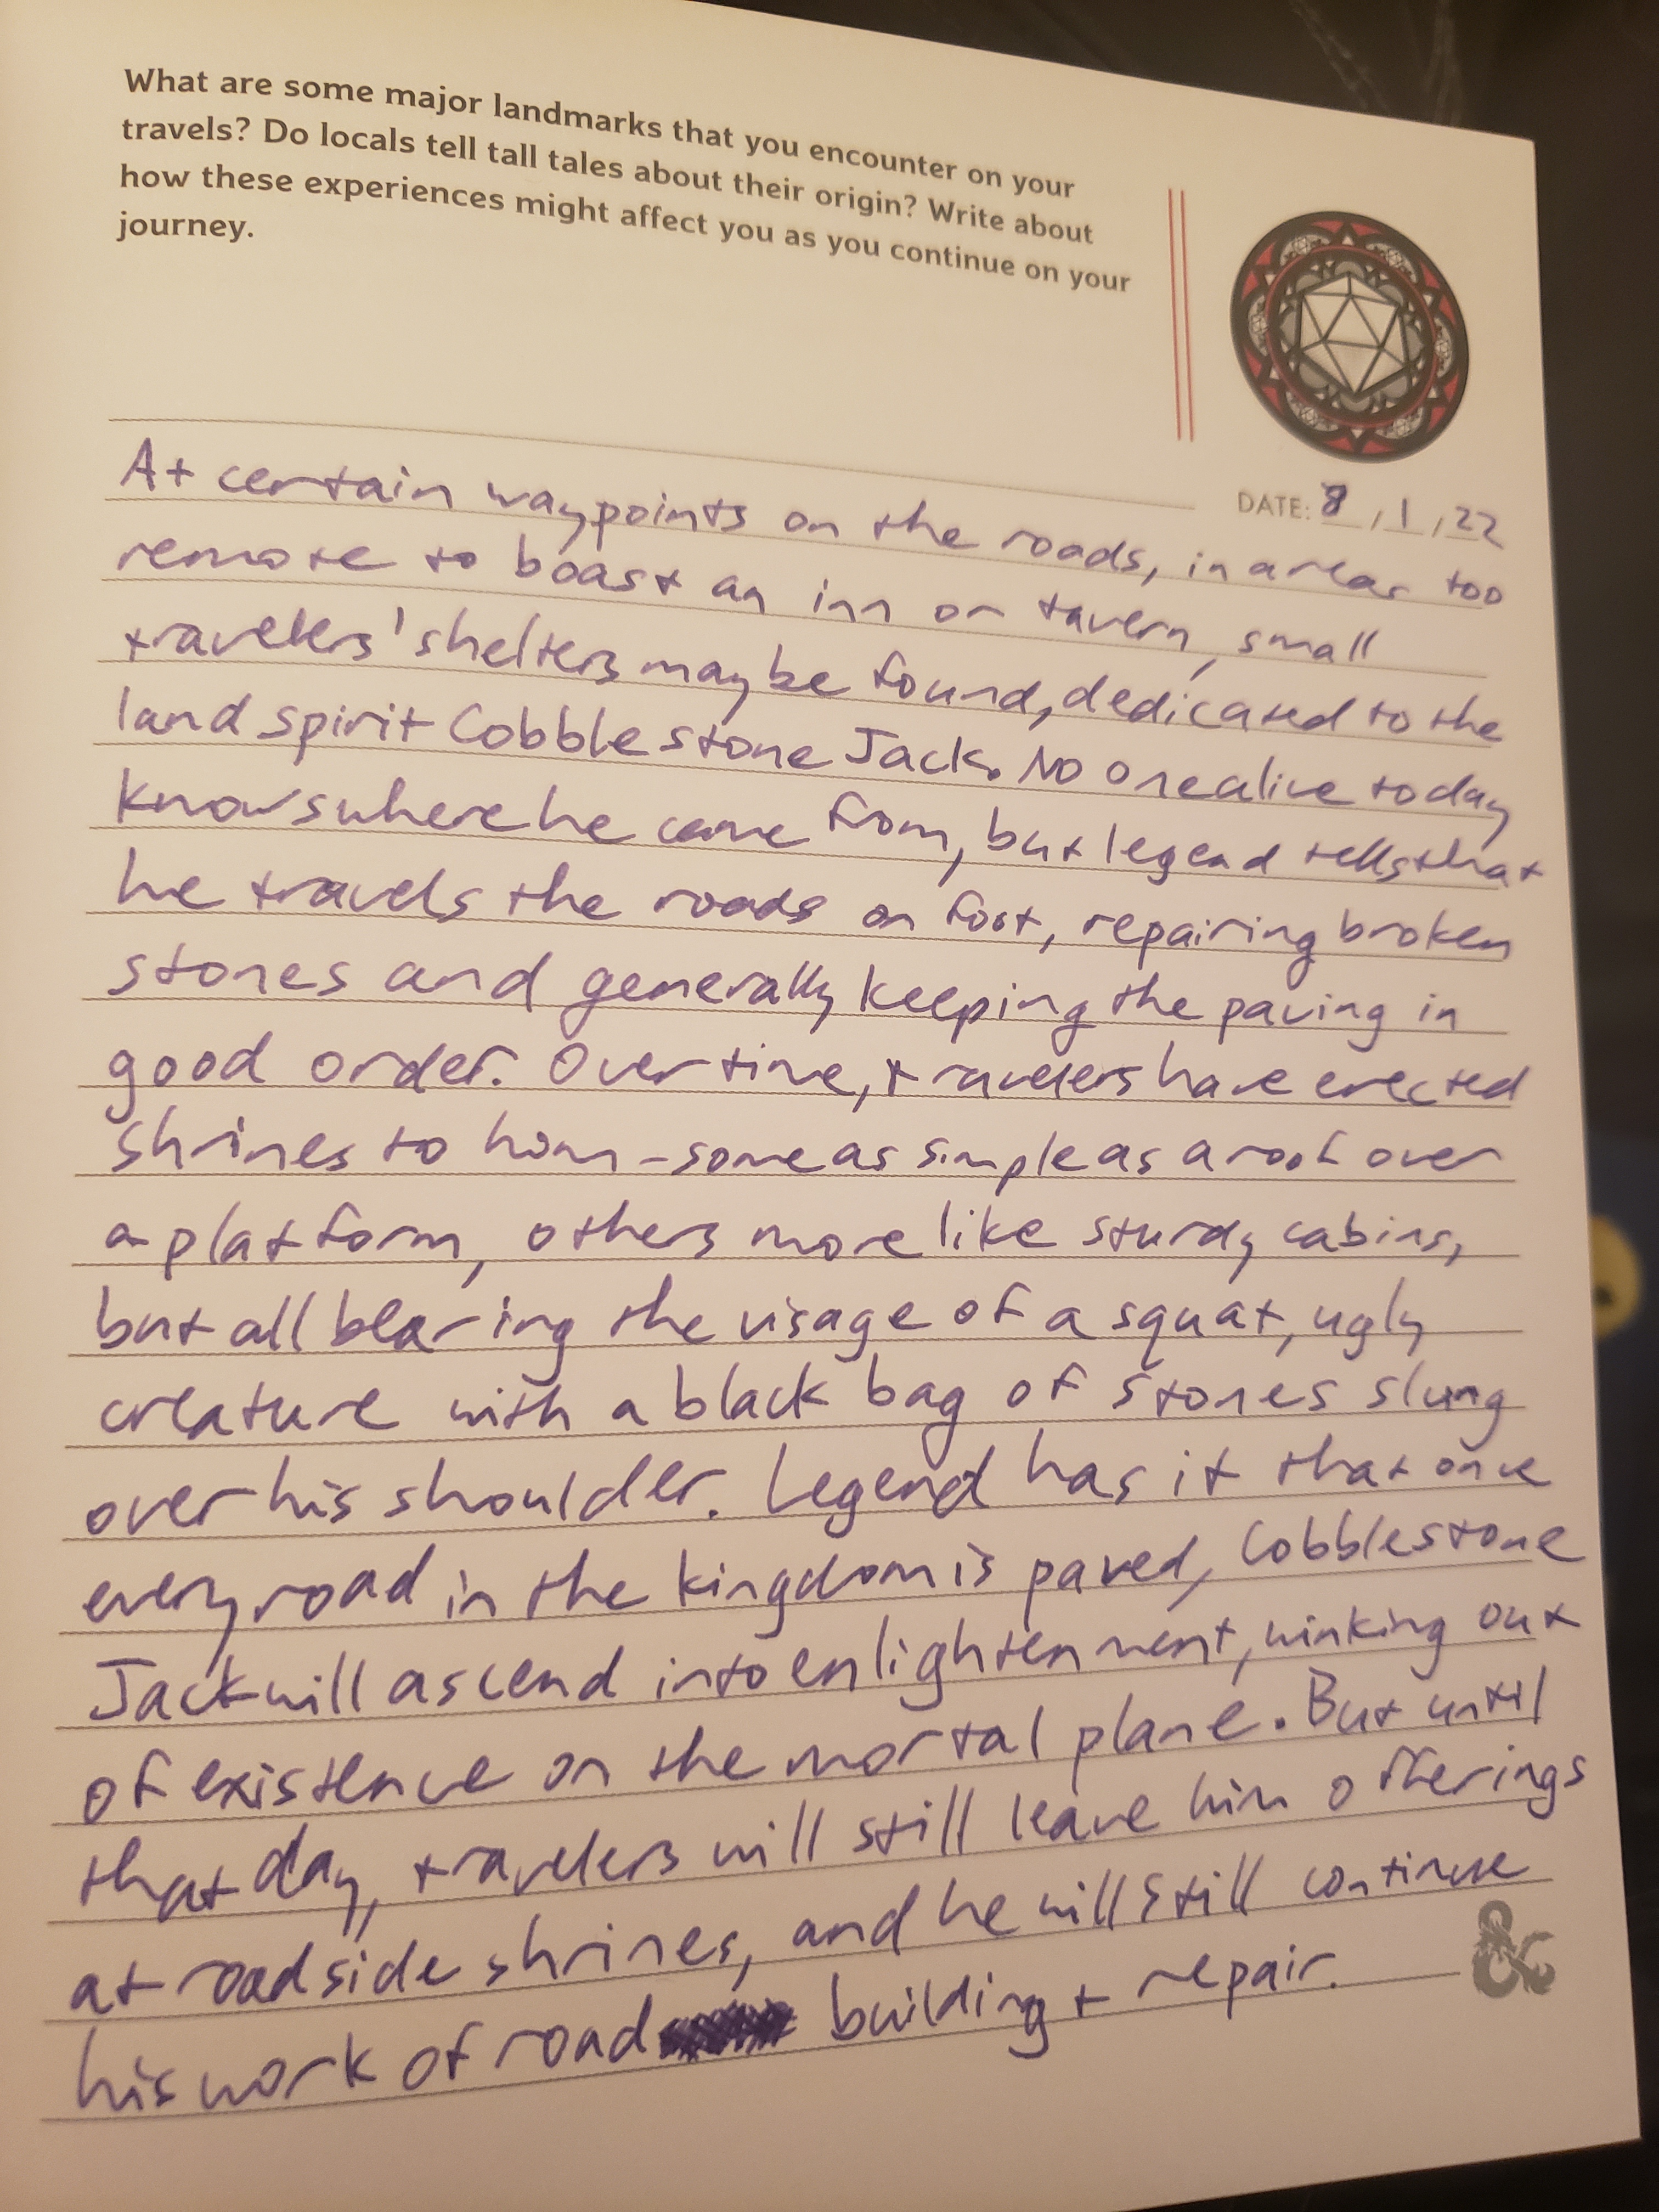 What are some major landmarks that you encounter on your
travels? Do locals tell tall tales about their origin? Write about
how these experiences might affect you as you continue on your
journey.
DATE: 8/1/22
At certain waypoints on the roads, in areas too
remote to boast an inn or tavern, small
travelers' shelters may be found, dedicated to the
land spirit Cobblestone Jack. No one alive today
knows where he came from, but legend tells that
he travels the roads on foot, repairing broken
stones and generally keeping the paving in
good order. Over time, travelers have erected
shrines to him - some as simple as a roof over
a platform, others more like sturdy cabins,
but all bearing the visage of a squat, ugly
creature with a black bag of stones slung
over his shoulder. Legend has it that once
every road in the kingdom is paved, Cobblestone
Jack will ascend into enlightenment, winking out
of existence on the mortal plane. But until
that day, travelers will still leave him offerings
at roadside shrines, and he will still continue
his work of road building + repair.